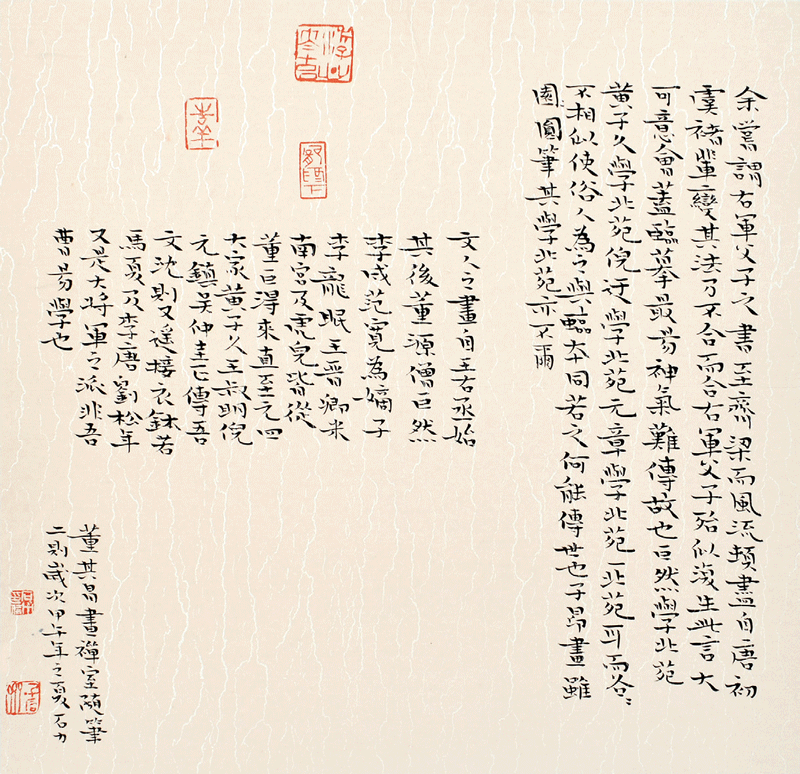 余嘗謂右軍父子之書至齊梁而風流頓盡自唐初
虞褚輩變其法乃不合而合右軍父子殆似復生此言大
可意會蓋臨摹最易神氣難傳故也巨然學北苑
黃子久學北苑倪迂學北苑元章學北苑一北苑耳而各〻
不相似使俗人為之與臨本同若之何能傳世也子昂畫雖
圓筆其學北苑亦不爾
文人之畫自王右丞始
其後董源僧巨然
李成范寬為嫡子
李龍眠王晉卿米
南宮及虎兒皆從
董巨得來直至元四
大家黃子久王叔明倪
元鎮吳仲圭正傳吾
文沈則又遙接衣鉢若
馬夏及李唐劉松年
又是大將軍之派非吾
曹易學也
董其昌畫禪室隨筆
二則歲次甲午年之夏石力